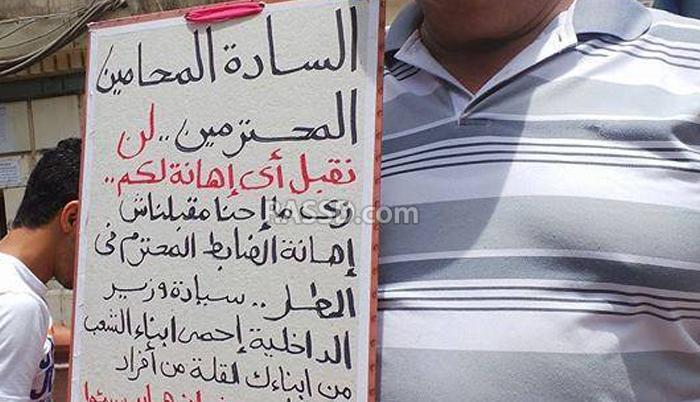 السادة المحامين
المحترمين .. لن
نقبل أى إهانة لكم ..
زى ما إحنا مقبلناش
إهانة الضابط المحترم فى
المطار .. سيادة وزير
الداخلية إحمى ابناء الشعب
من ابناءك القلة من أفراد
RASSD.com